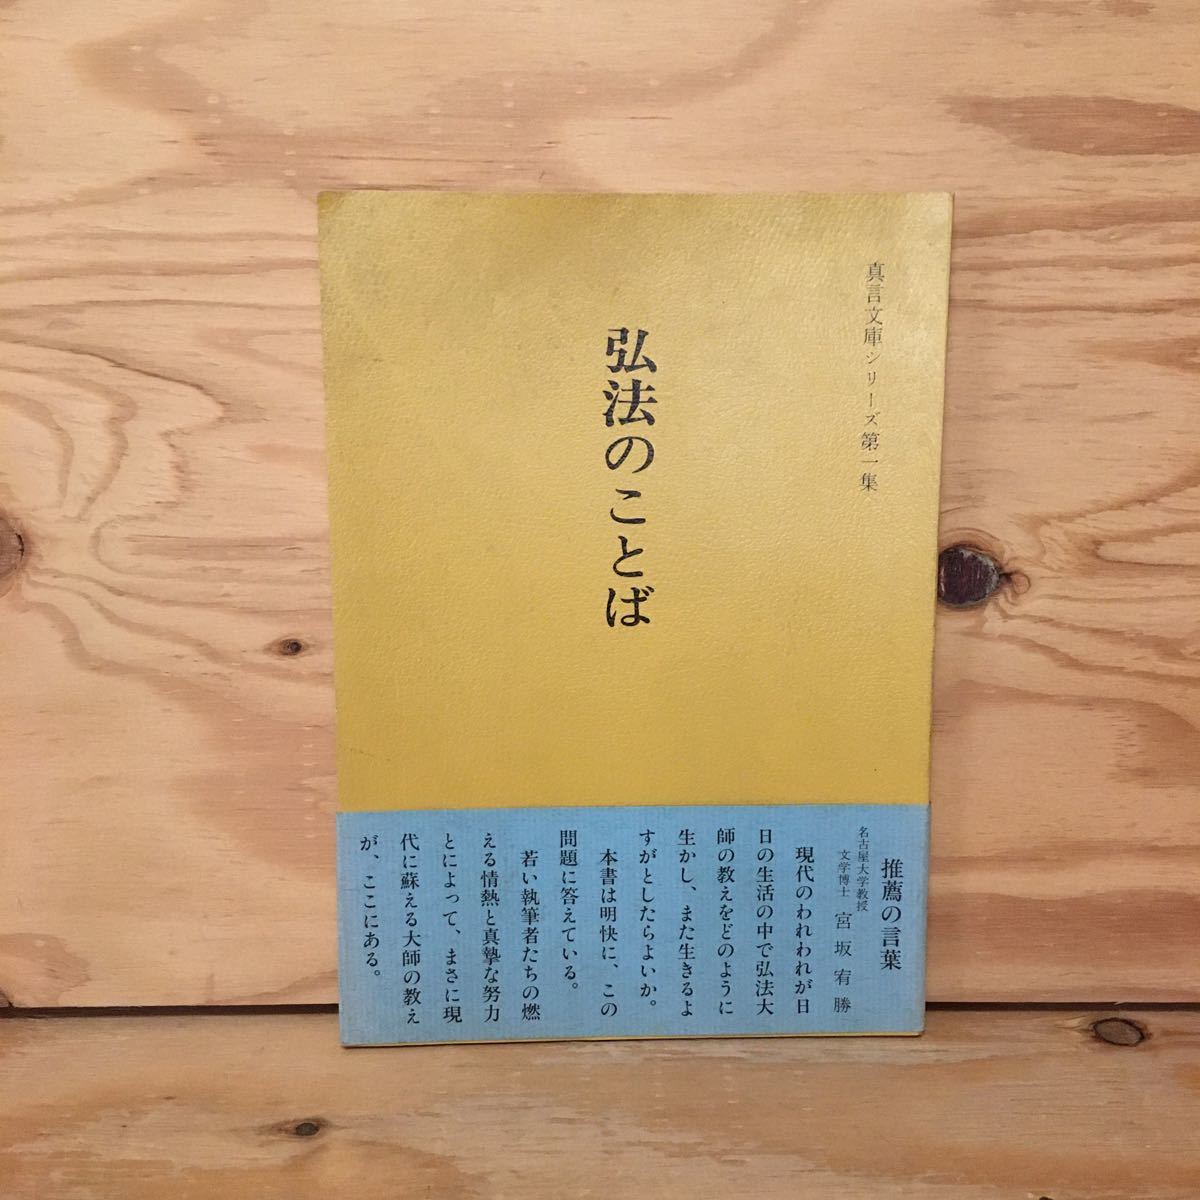 真言文庫シリーズ第一集
弘法のことば
推薦の言葉
名古屋大学教授
文学博士
宮坂宥勝
現代のわれわれが日
日の生活の中で弘法大
師の教えをどのように
生かし、また生きるよ
すがとしたらよいか。
本書は明快に、この
問題に答えている。
若い執筆者たちの燃
える情熱と真摯な努力
とによって、まさに現
代に蘇える大師の教え
が、ここにある。